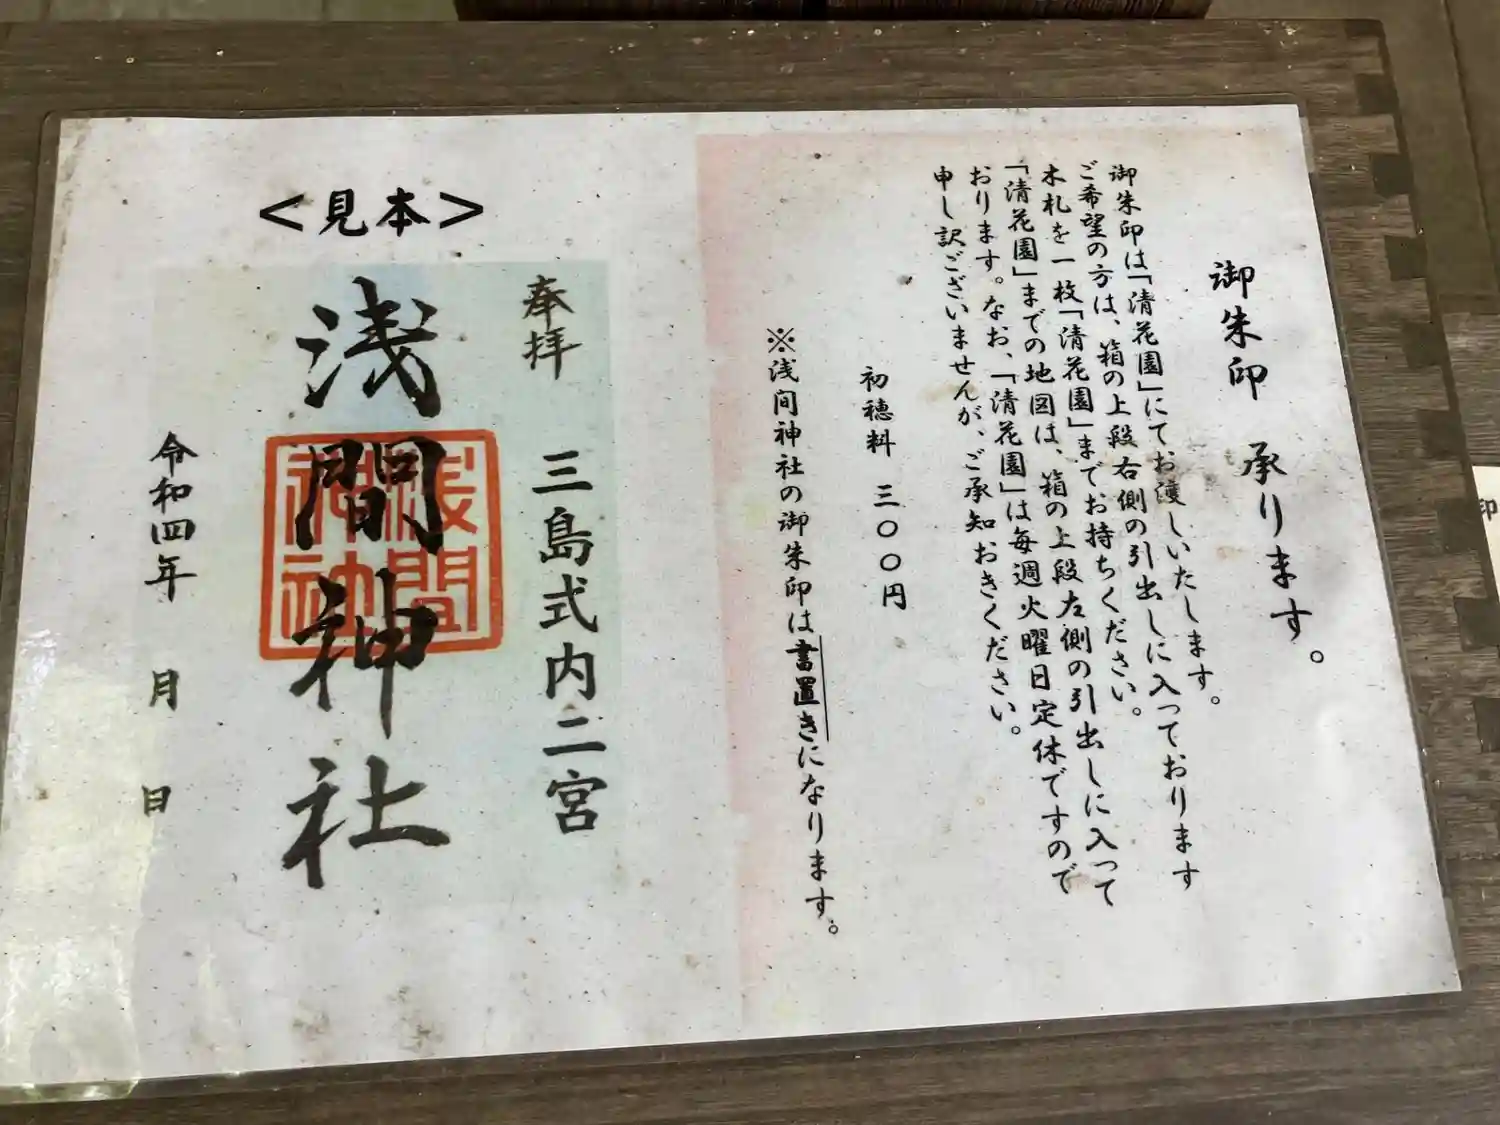 御朱印 承ります。
御朱印は「清花園」にてお渡しいたします。
ご希望の方は、箱の上段右側の引出しに入っております
木札を一枚「清花園」までお持ちください。
「清花園」までの地図は、箱の上段左側の引出しに入って
おります。なお、「清花園」は毎週火曜日定休ですので
申し訳ございませんが、ご承知おきください。
初穂料 三〇〇円
※浅間神社の御朱印は書置きになります。
<見本>
奉拝 三島式内二宮
浅間神社
浅間
神社
令和四年 月 日
印